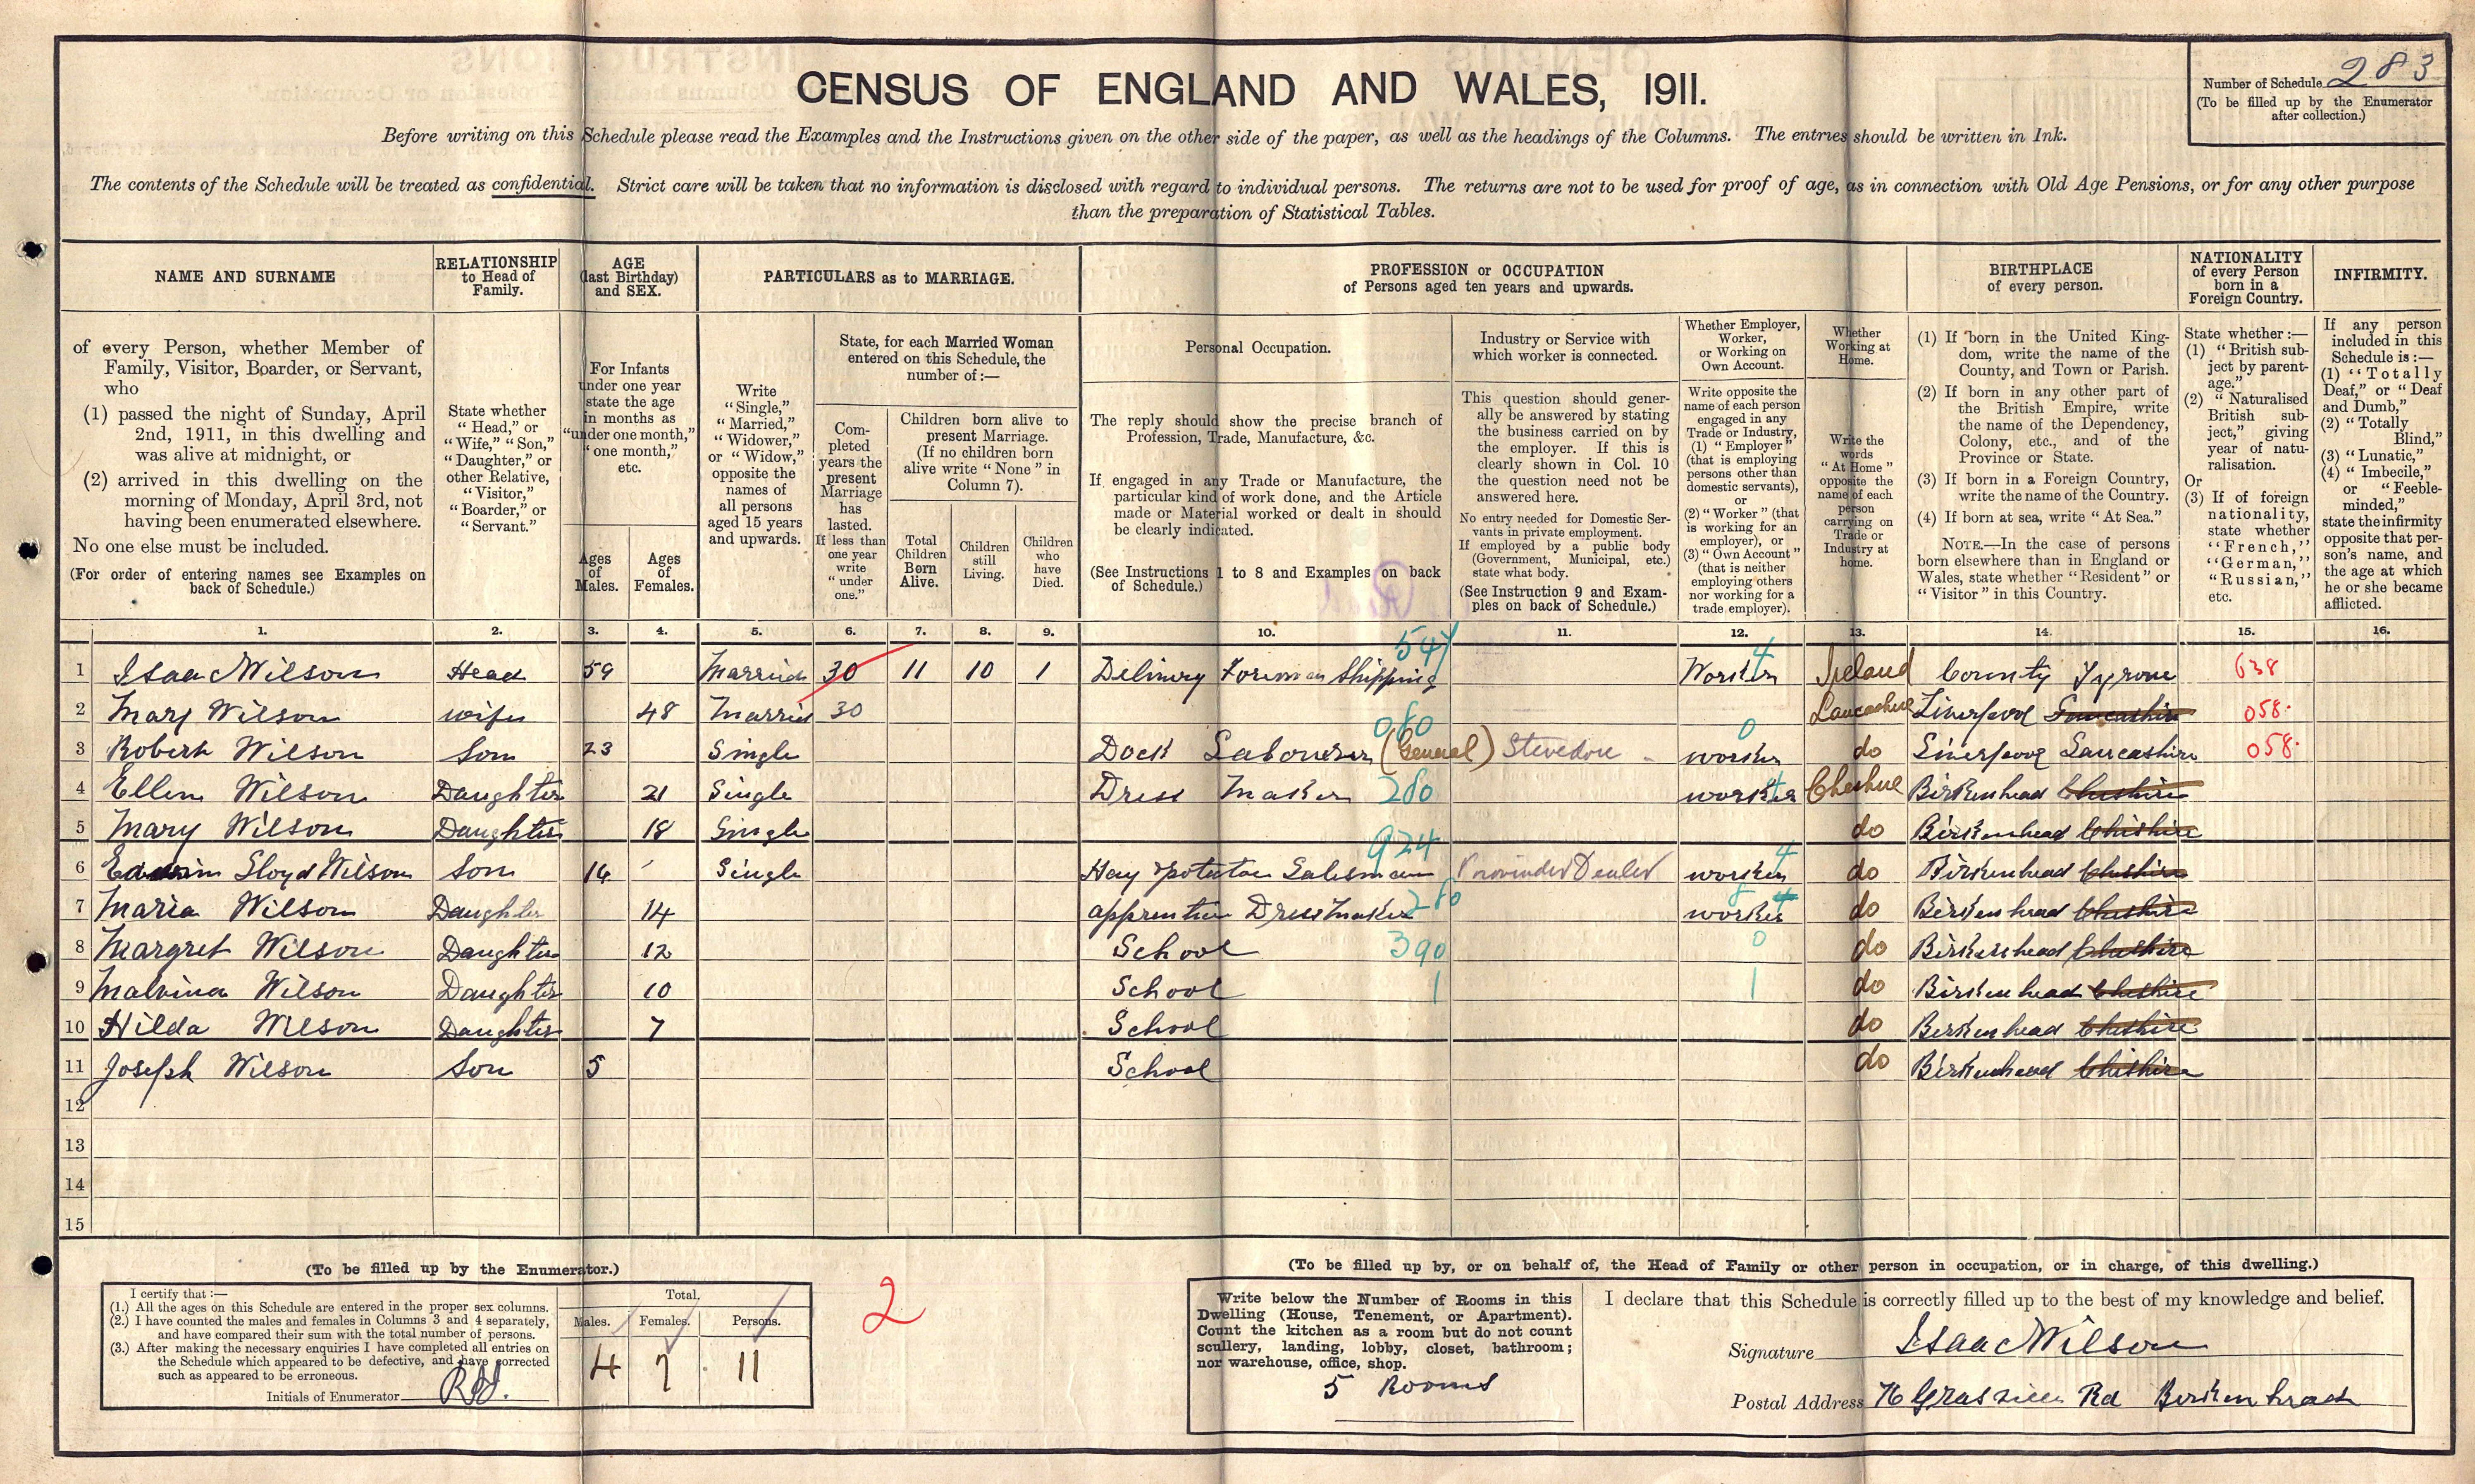 CENSUS OF ENGLAND AND WALES, 1911.
Number of Schedule 283
(To be filled up by the Enumerator
after collection.)
Before writing on this Schedule please read the Examples and the Instructions given on the other side of the paper, as well as the headings of the Columns. The entries should be written in Ink.
The contents of the Schedule will be treated as confidential. Strict care will be taken that no information is disclosed with regard to individual persons. The returns are not to be used for proof of age, as in connection with Old Age Pensions, or for any other purpose
than the preparation of Statistical Tables.
NAME AND SURNAME
of every Person, whether Member of
Family, Visitor, Boarder, or Servant,
who
(1) passed the night of Sunday, April
2nd, 1911, in this dwelling and
was alive at midnight, or
(2) arrived in this dwelling on the
morning of Monday, April 3rd, not
having been enumerated elsewhere.
No one else must be included.
(For order of entering names see Examples on
back of Schedule.)
RELATIONSHIP
to Head of
Family.
State whether
"Head," or
"Wife," "Son,"
"Daughter," or
other Relative,
"Visitor,"
"Boarder," or
"Servant."
AGE
(last Birthday)
and SEX.
For Infants
under one year
state the age
in months as
"under one month,"
"one month,"
etc.
Ages
of
Males.
Ages
of
Females.
PARTICULARS as to MARRIAGE.
Write
"Single,"
"Married,"
"Widower,"
or "Widow,"
opposite the
names of
all persons
aged 15 years
and upwards.
State, for each Married Woman
entered on this Schedule, the
number of:—
Com-
pleted
years the
present
Marriage
has
lasted.
If less than
one year
write
"under
one."
Children born alive to
present Marriage.
(If no children born
alive write "None" in
Column 7).
Total
Children
Born
Alive.
Children
still
Living.
Children
who
have
Died.
PROFESSION or OCCUPATION
of Persons aged ten years and upwards.
Personal Occupation.
The reply should show the precise branch of
Profession, Trade, Manufacture, &c.
If engaged in any Trade or Manufacture, the
particular kind of work done, and the Article
made or Material worked or dealt in should
be clearly indicated.
(See Instructions 1 to 8 and Examples on back
of Schedule.)
Industry or Service with
which worker is connected.
This question should gener-
ally be answered by stating
the business carried on by
the employer. If this is
clearly shown in Col. 10
the question need not be
answered here.
No entry needed for Domestic Ser-
vants in private employment.
If employed by a public body
(Government, Municipal, etc.)
state what body.
(See Instruction 9 and Exam-
ples on back of Schedule.)
Whether Employer,
Worker,
or Working on
Own Account.
Write opposite the
name of each person
engaged in any
Trade or Industry,
(1) "Employer"
(that is employing
persons other than
domestic servants),
or
(2) "Worker" (that
is working for an
employer), or
(3) "Own Account"
(that is neither
employing others
nor working for a
trade employer).
Whether
Working at
Home.
Write the
words
"At Home"
opposite the
name of each
person
carrying on
Trade or
Industry at
home.
BIRTHPLACE
of every person.
(1) If born in the United King-
dom, write the name of the
County, and Town or Parish.
(2) If born in any other part of
the British Empire, write
the name of the Dependency,
Colony, etc., and of the
Province or State.
(3) If born in a Foreign Country,
write the name of the Country.
(4) If born at sea, write "At Sea."
NOTE.—In the case of persons
born elsewhere than in England or
Wales, state whether "Resident" or
"Visitor" in this Country.
NATIONALITY
of every Person
born in a
Foreign Country.
State whether:—
(1) "British sub-
ject by parent-
age."
(2) "Naturalised
British sub-
ject," giving
year of natu-
ralisation.
Or
(3) If of foreign
nationality,
state whether
"French,"
"German,"
"Russian,"
etc.
INFIRMITY.
If any person
included in this
Schedule is:—
(1) "Totally
Deaf," or "Deaf
and Dumb,"
(2) "Totally
Blind,"
(3) "Lunatic,"
(4) "Imbecile,"
or "Feeble-
minded,"
state the infirmity
opposite that per-
son's name, and
the age at which
he or she became
afflicted.
1. 2. 3. 4. 5. 6. 7. 8. 9. 10. 11. 12. 13. 14. 15. 16.
1 Isaac Wilson Head 59 Married 30 11 10 1 Delivery Foreman Shipping 547 Worker 4 Ireland County Tyrone 638
2 Mary Wilson wife 48 Married 30 Lancashire Liverpool Lancashire 058.
3 Robert Wilson Son 23 Single Dock Labourer (General) 080 Stevedore worker 0 do Liverpool Lancashire 058.
4 Ellen Wilson Daughter 21 Single Dress Maker 280 worker 4 Cheshire Birkenhead Cheshire
5 Mary Wilson Daughter 18 Single do Birkenhead Cheshire
6 Edwin Lloyd Wilson Son 16 Single Hay & potatoe Salesman 924 Provinder Dealer worker 4 do Birkenhead Cheshire
7 Maria Wilson Daughter 14 apprentice Dress Maker 280 worker 4 do Birkenhead Cheshire
8 Margret Wilson Daughter 12 School 390 0 do Birkenhead Cheshire
9 Malvina Wilson Daughter 10 School 1 1 do Birkenhead Cheshire
10 Hilda Wilson Daughter 7 School do Birkenhead Cheshire
11 Joseph Wilson Son 5 School do Birkenhead Cheshire
12
13
14
15
(To be filled up by the Enumerator.)
I certify that:—
(1.) All the ages on this Schedule are entered in the proper sex columns.
(2.) I have counted the males and females in Columns 3 and 4 separately,
and have compared their sum with the total number of persons.
(3.) After making the necessary enquiries I have completed all entries on
the Schedule which appeared to be defective, and have corrected
such as appeared to be erroneous.
Initials of Enumerator
Total.
Males. Females. Persons.
4 7 11
2
(To be filled up by, or on behalf of, the Head of Family or other person in occupation, or in charge, of this dwelling.)
Write below the Number of Rooms in this
Dwelling (House, Tenement, or Apartment).
Count the kitchen as a room but do not count
scullery, landing, lobby, closet, bathroom;
nor warehouse, office, shop.
5 Rooms
I declare that this Schedule is correctly filled up to the best of my knowledge and belief.
Signature Isaac Wilson
Postal Address 76 Rd Birkenhead